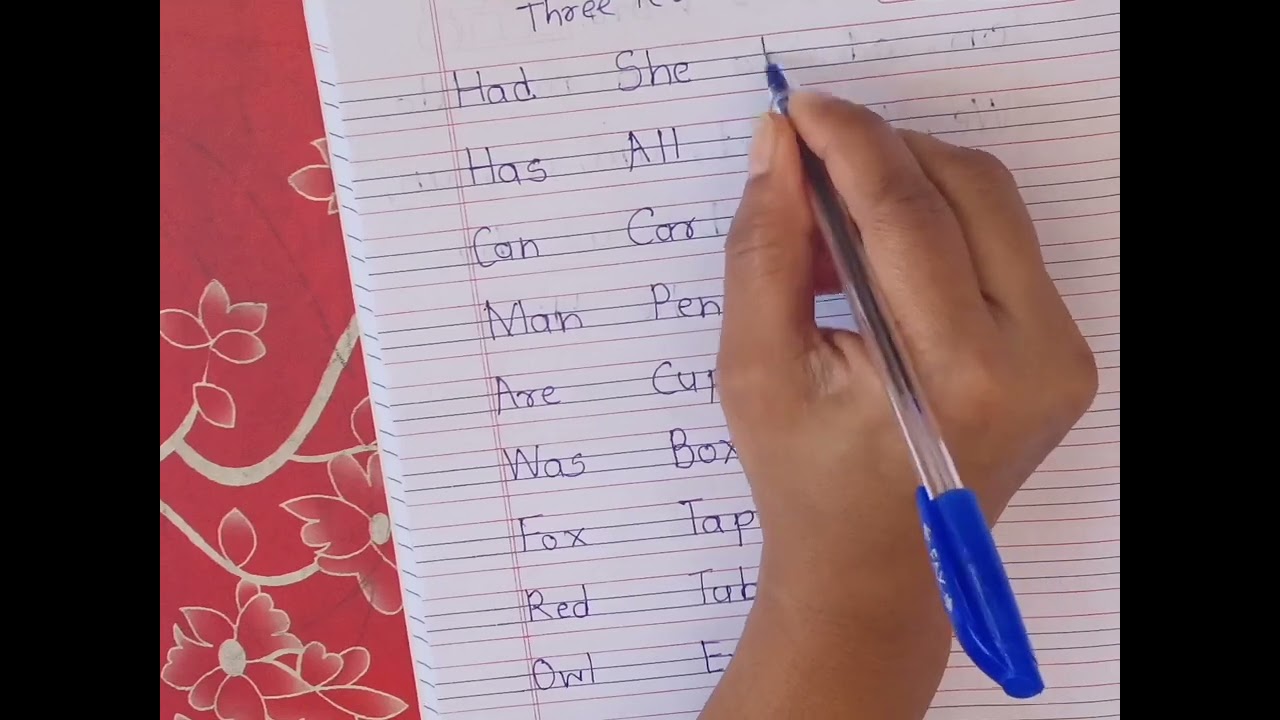 Three
Had She
Has All
Can Car
Man Pen
Are Cup
Was Box
Fox Tap
Red Tub
Owl